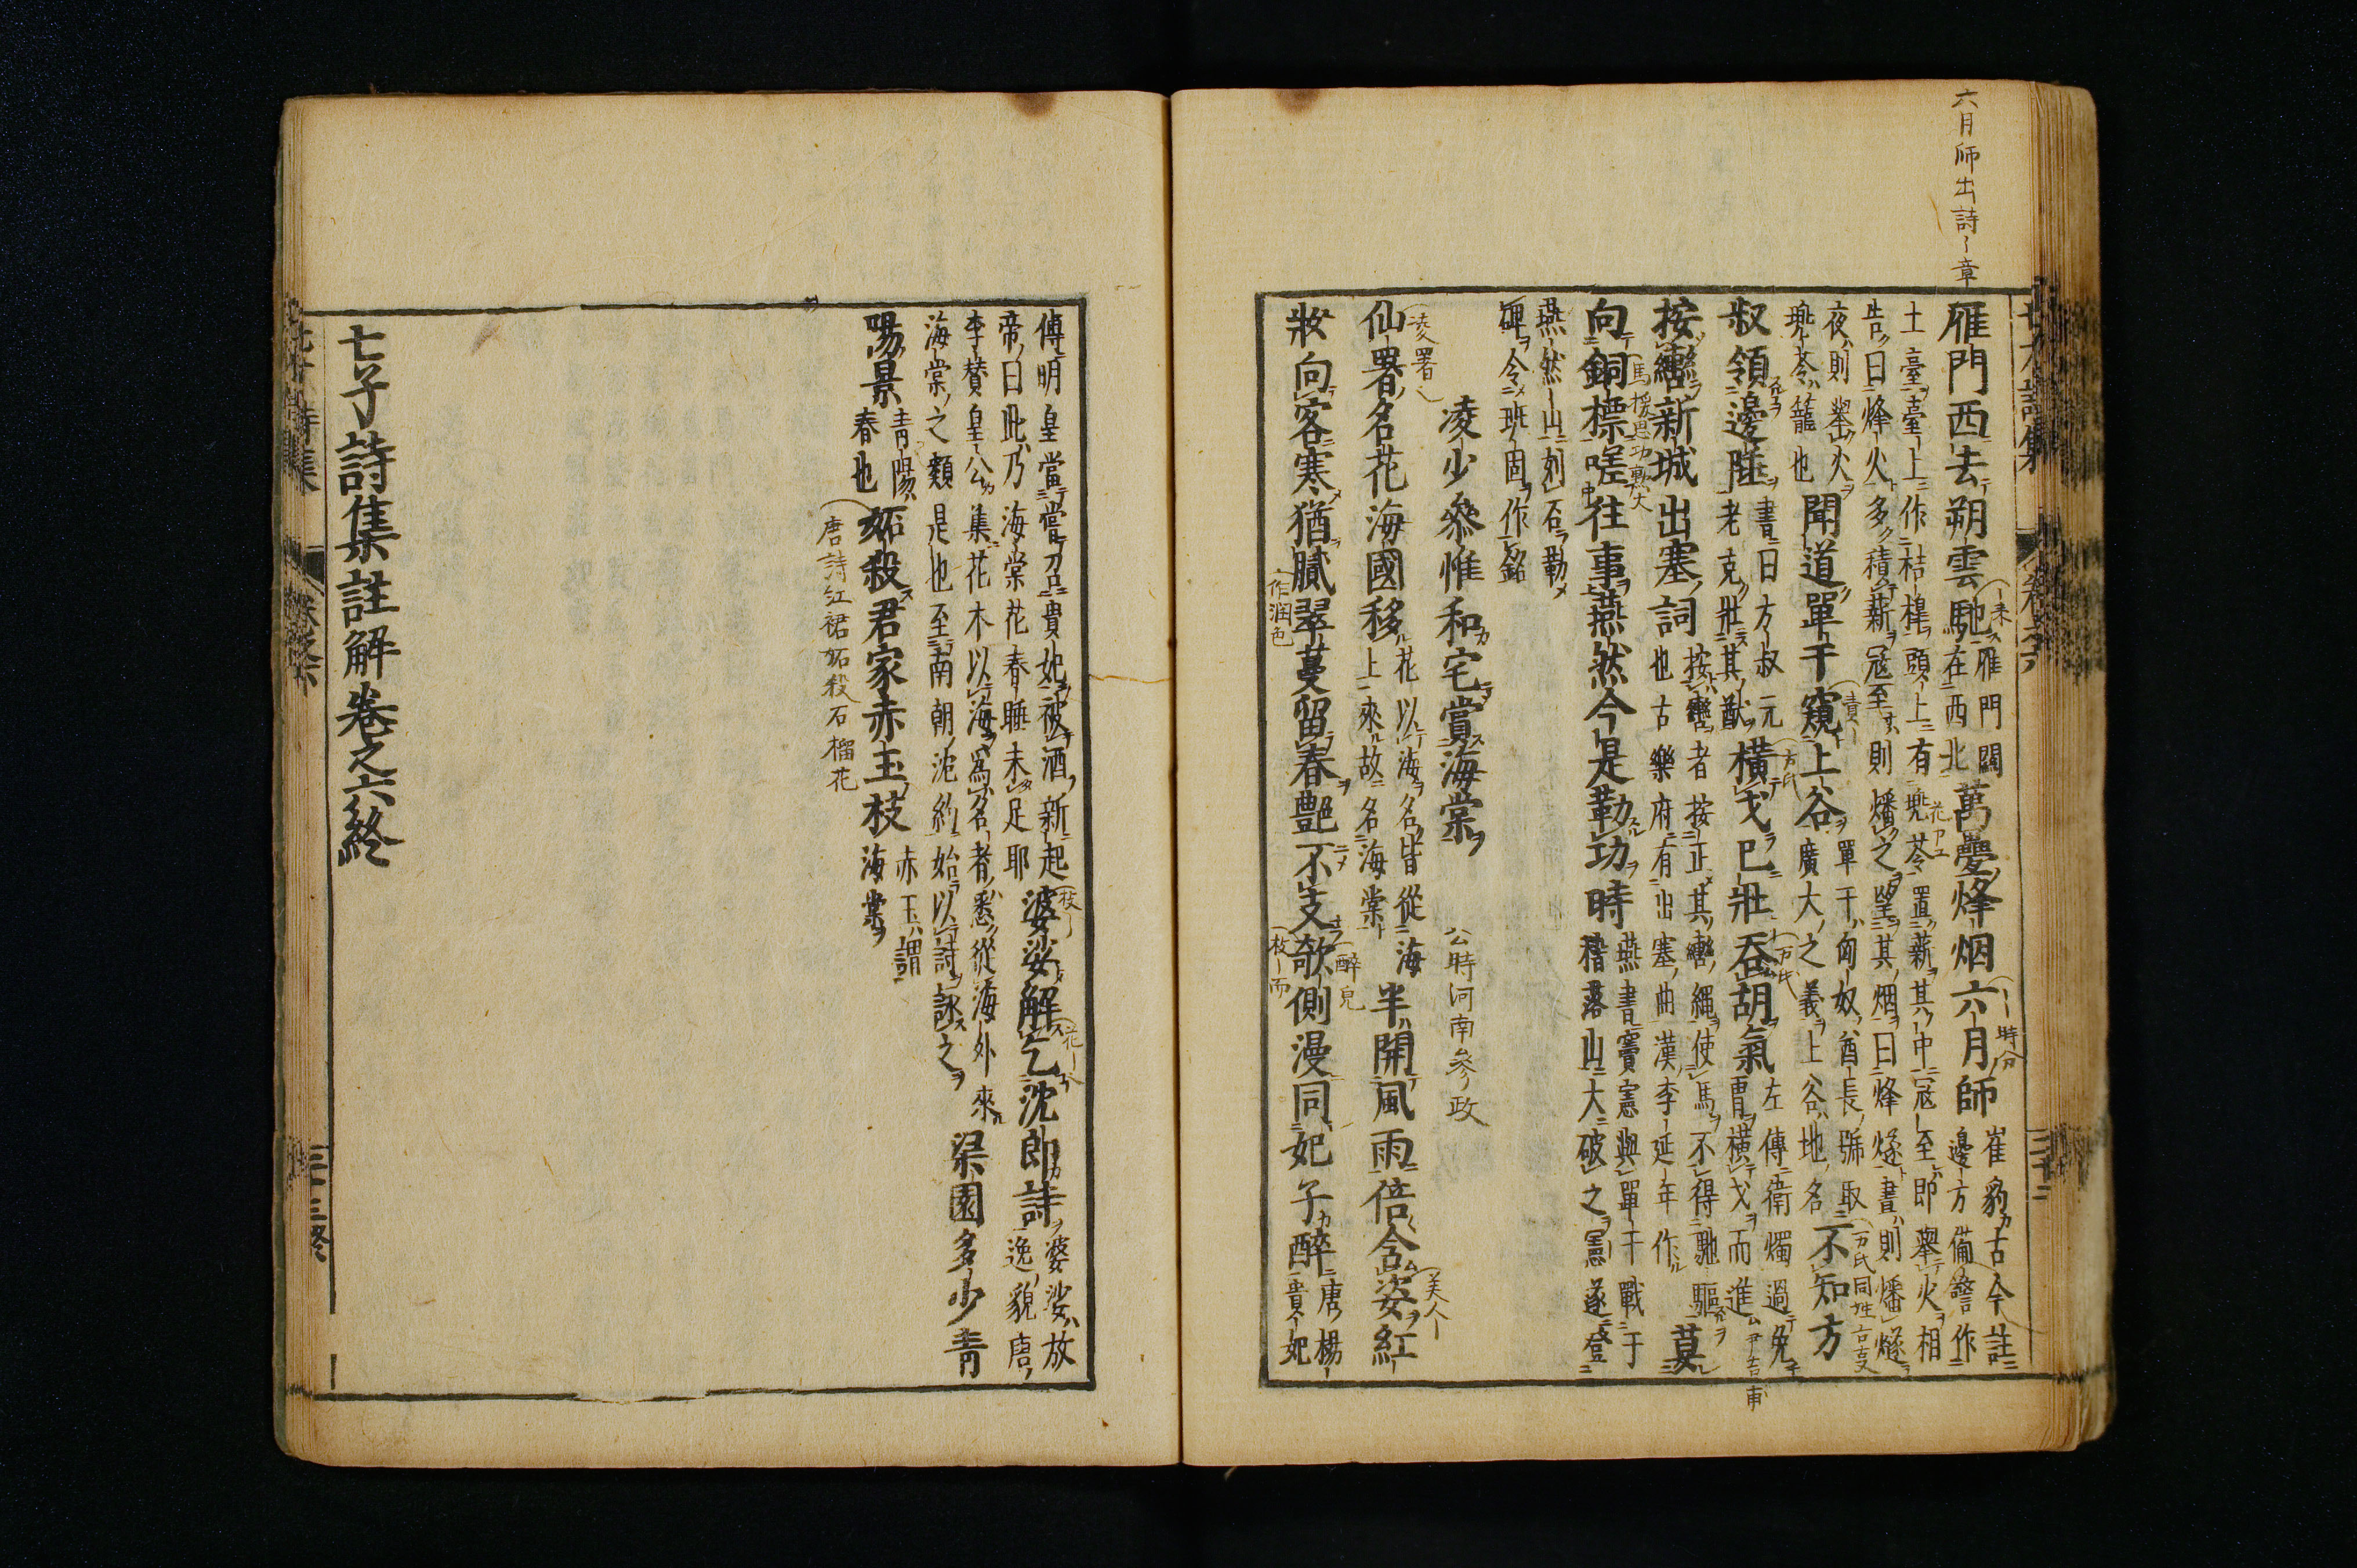 六月師出詩〻章
雁門西去朔雲馳 雁門關在西北 萬疊烽烟六月師 崔豹古今註邊方備警作
土臺臺上作桔橰頭上有兠苓置薪其中冦至即舉火相
告曰烽火多積薪冦至則燔之望其烟曰烽燧書則燔燧
夜則舉火兠苓籠也 聞道單于窺上谷 單于匈奴酋長號取廣大之義上谷地名 不知方
叔領邊陲 書曰方叔元老克壯其猷 橫戈已壯吞胡氣 左傳衛燭過免胄橫戈而進
按轡新城出塞詞 按轡者按正其轡繩使馬不得馳驅也古樂府有出塞曲漢李延年作 莫
向銅標嗟往事燕然今是勒功時 燕書竇憲與單于戰于稽落山大破之憲遂登
燕然山刻石勒
碑令班固作銘
凌少參惟和宅賞海棠 公時河南參政
仙署名花海國移 花以海名皆從海上來故名海棠 半開風雨倍含姿紅
妝向客寒猶膩翠蔓留春艷不支欹側漫同妃子醉 唐楊貴妃
傳明皇當嘗召貴妃被酒新起
帝曰此乃海棠花春睡未足耶 婆娑解乞沈郎詩 婆娑放逸貌唐
李贊皇公集花木以海爲名者悉從海外來
海棠之類是也至南朝沈約始以詩詠之 梁園多少青
陽景 青陽春也 妬殺君家赤玉枝 赤玉謂海棠
唐詩紅裙妬殺石榴花
七子詩集註解卷之六終